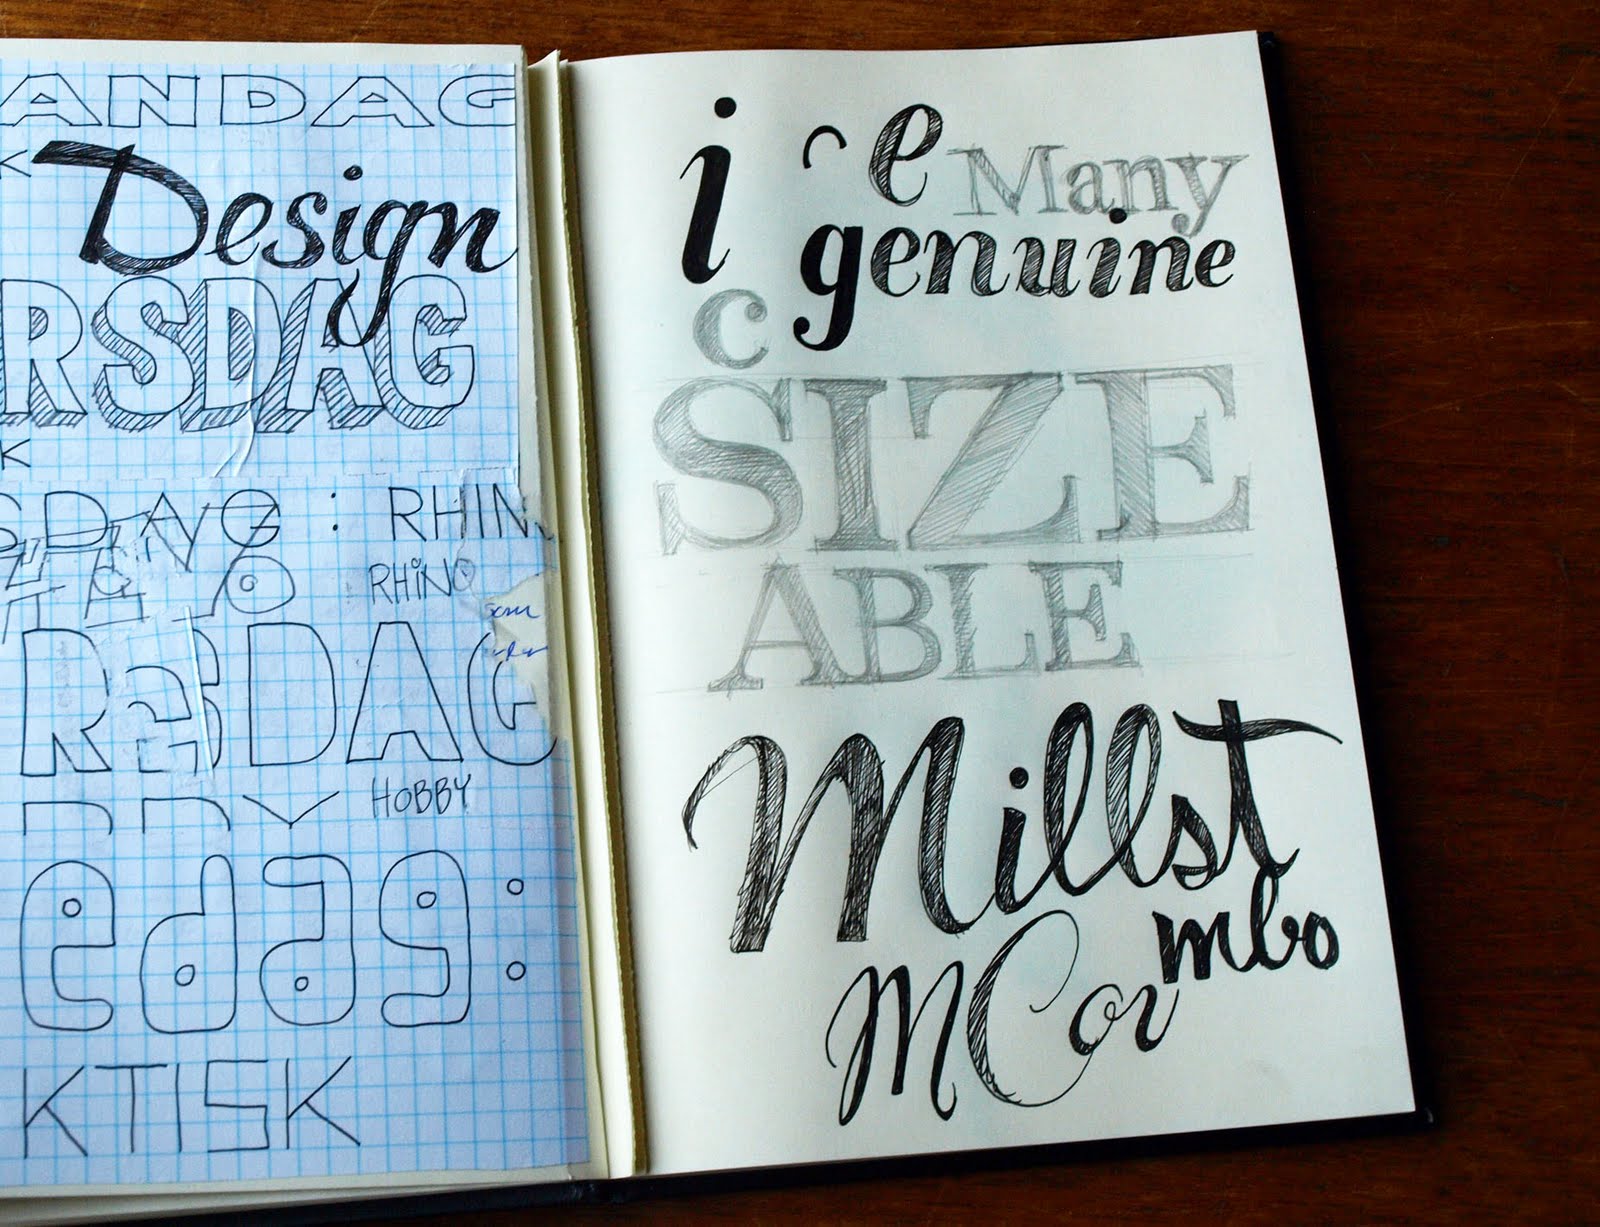 ANDAG
K
Design
RSDAG
K
SDAG : RHIN
RHINO
RSDAG
HOBBY
edag:
KTISK
i e
Many
genuine
c
SIZE
ABLE
Millst
mbo
M C or